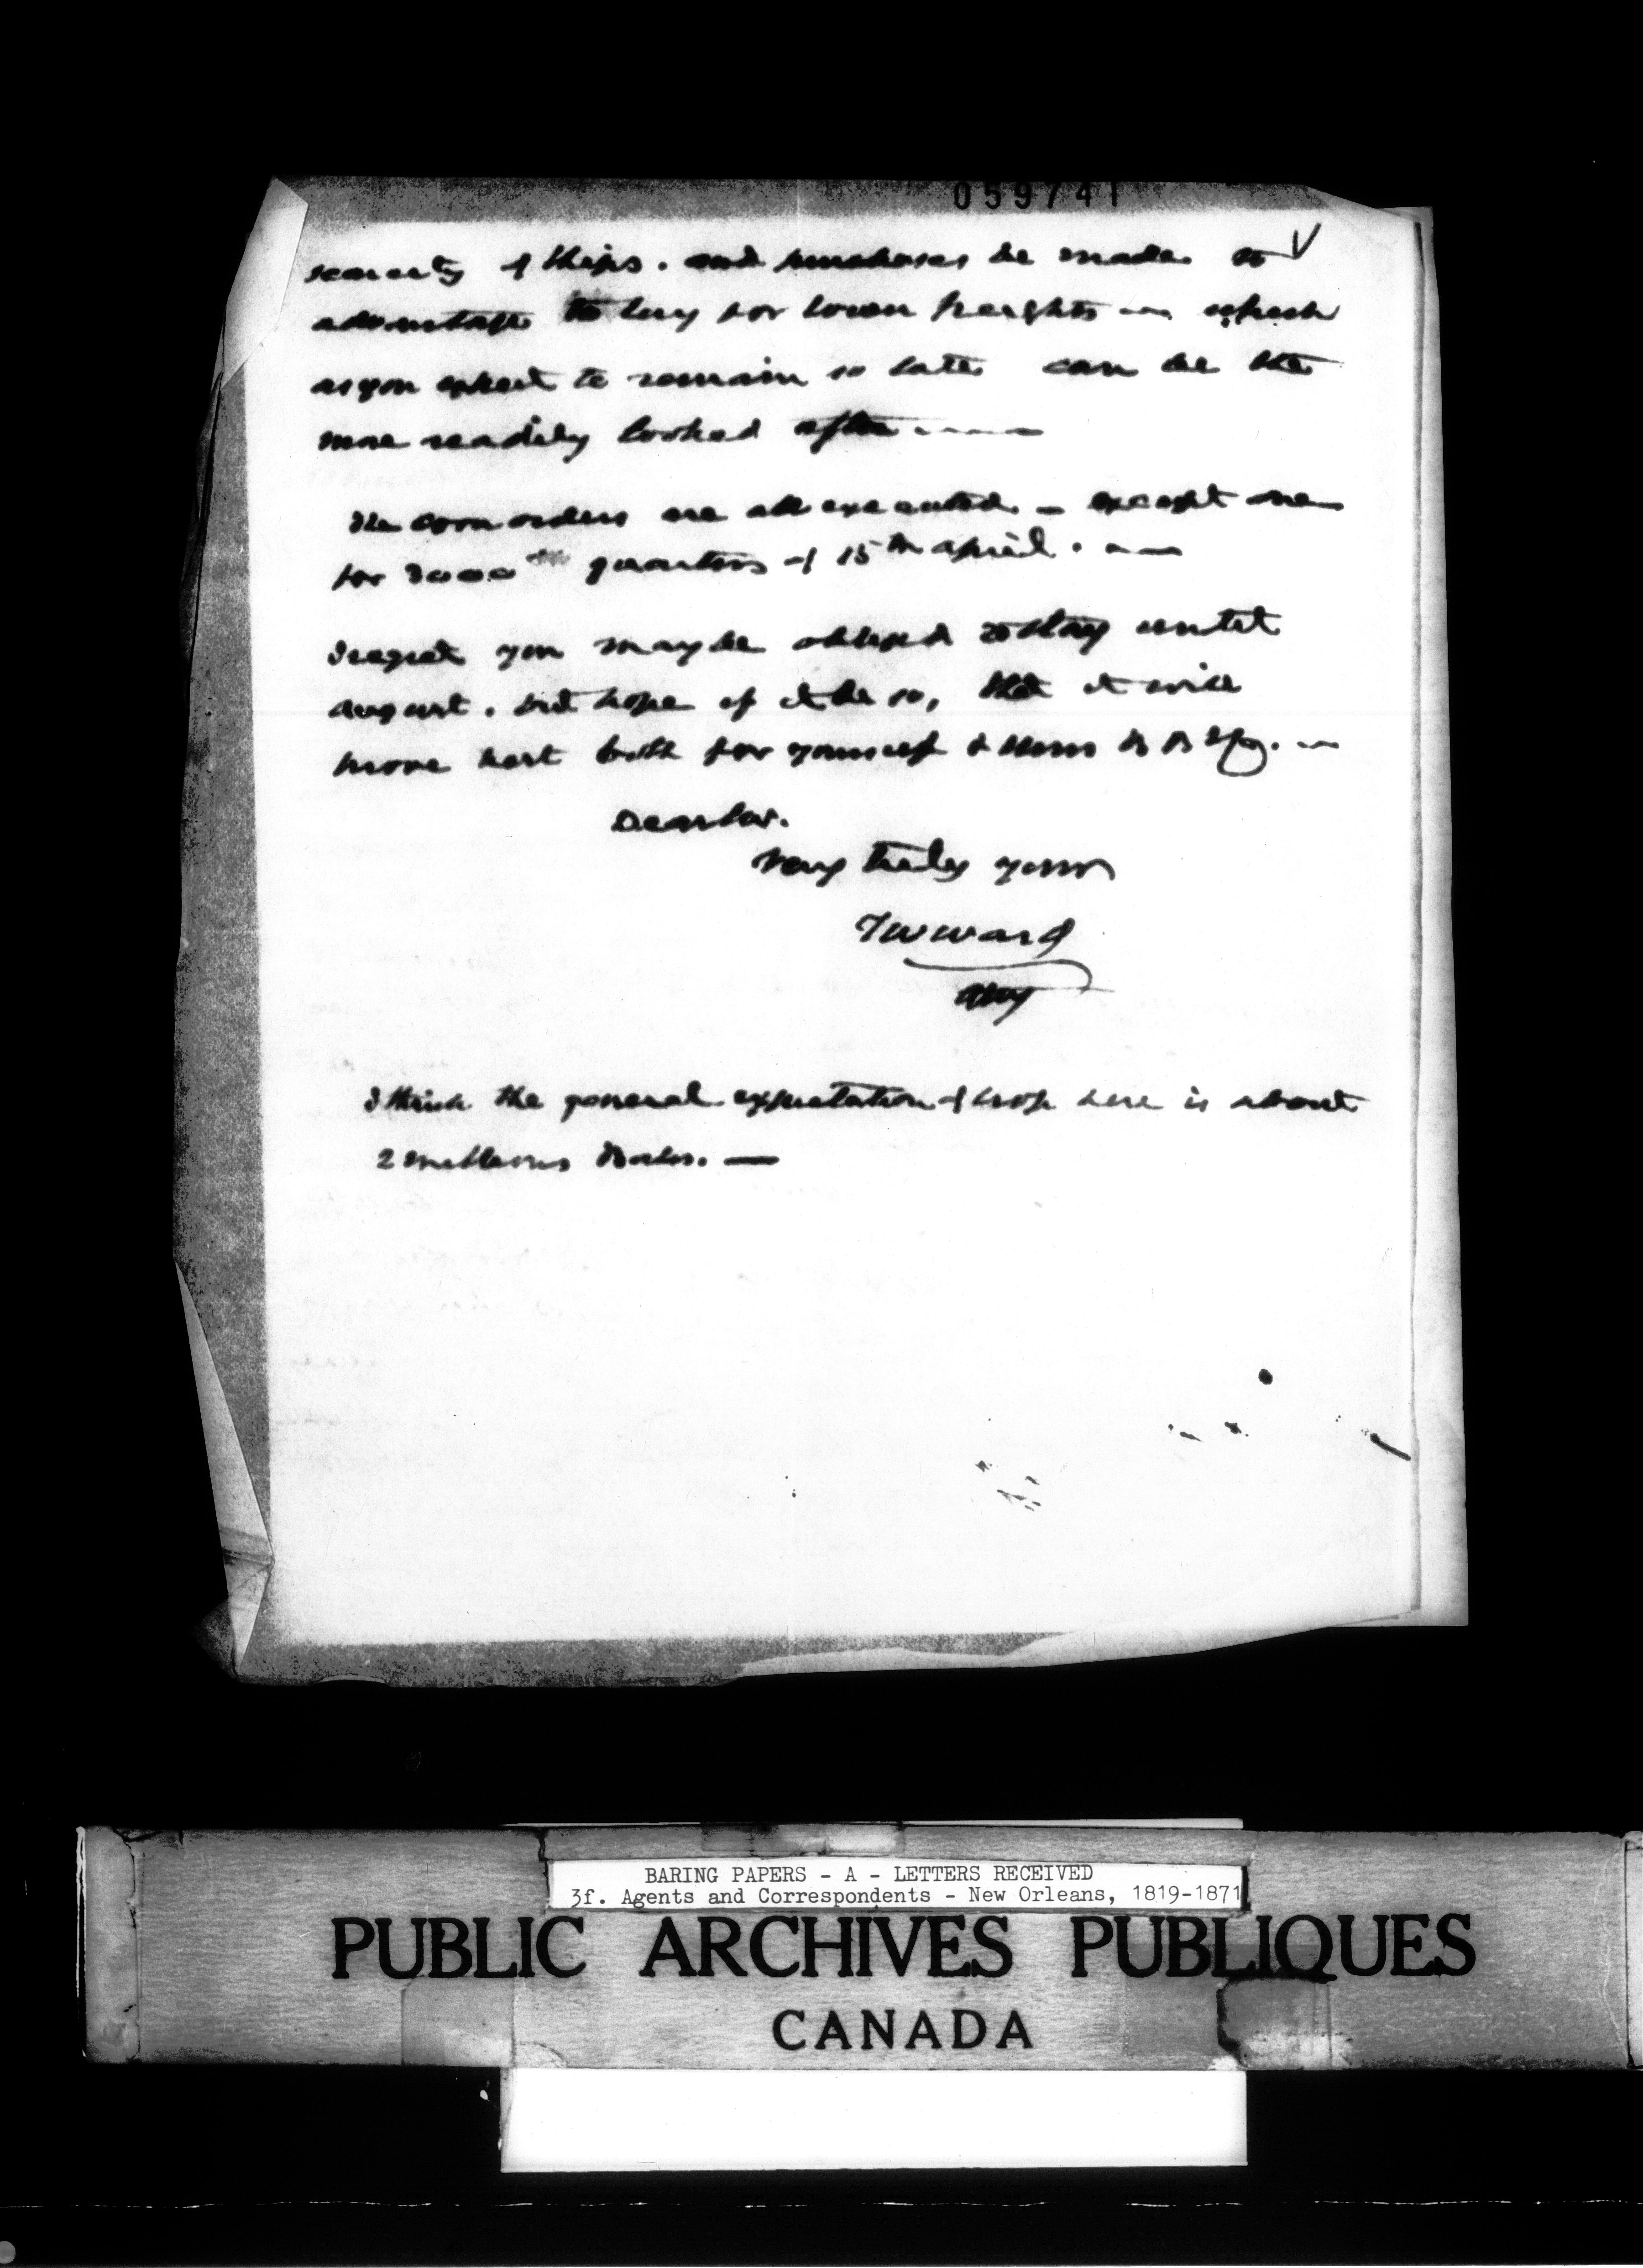 059741
scarcity of ships. and purchases be made to
advantage to buy for lower freights — which
as you expect to remain so late can be the
more readily looked after —
The corn orders are all executed — except one
for quarters of 15th april. —
I regret you may be obliged to stay until
august. but hope if it be so, that it will
prove best both for yourself & Messrs B B & Co. —
Dear Sir.
Very truly yours
T W Ward
I think the general expectation of crop here is about
2 millions Bales. —
BARING PAPERS - A - LETTERS RECEIVED
3f. Agents and Correspondents - New Orleans, 1819-1871
PUBLIC ARCHIVES PUBLIQUES
CANADA